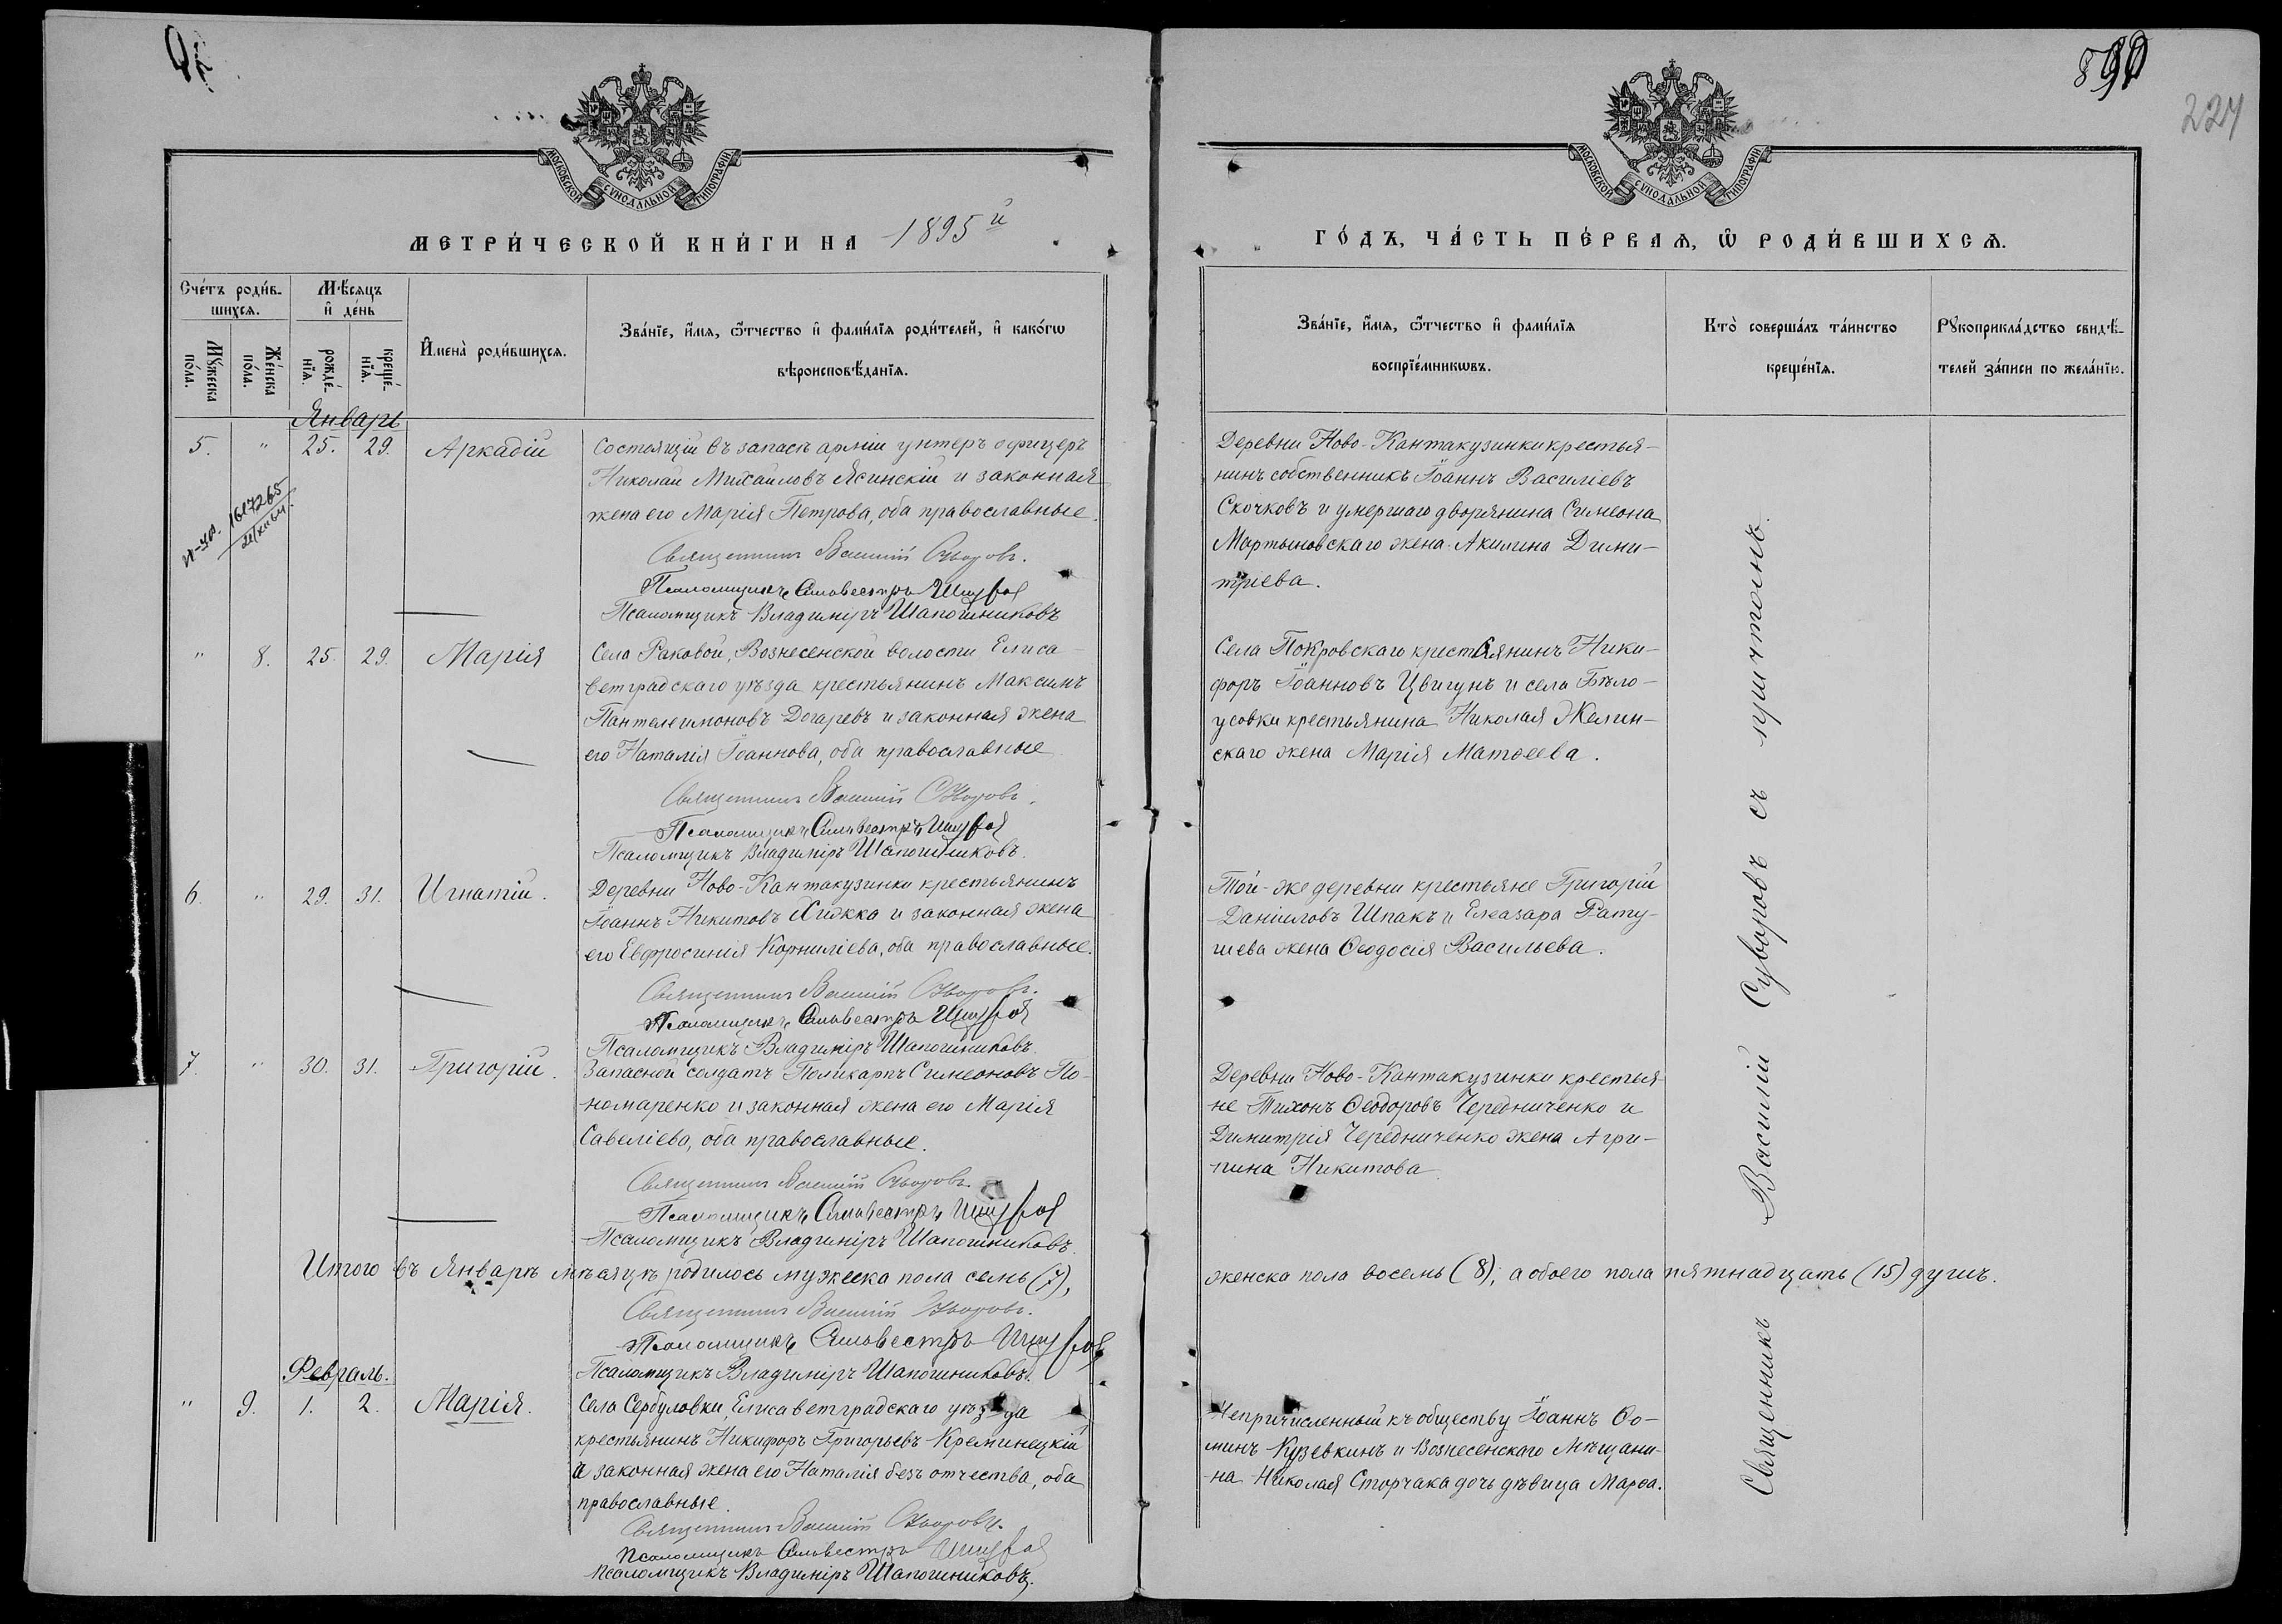 890
224
МОСКОВСКОЙ СУНОДАЛЬНОЙ ТИПОГРАФІИ
МОСКОВСКОЙ СУНОДАЛЬНОЙ ТИПОГРАФІИ
МЕТРИ́ЧЕСКОЙ КНИ́ГИ НА 1895й
ГО́ДЪ, ЧА́СТЬ ПЕ́РВАѦ, Ѡ҆ РОДИ́ВШИХСѦ.
Сче́тъ роди́в-
шихсѧ.
Мꙋ́жеска по́ла.
Же́нска по́ла.
Мѣ́сяцъ
и҆ де́нь
рожде́-нїѧ.
креще́-нїѧ.
И҆мена̀ роди́вшихсѧ.
Зва́нїе, и҆́мѧ, ѻ҆́тчество и҆ фами́лїѧ роди́телей, и҆ како́гѡ
вѣроисповѣ́данїѧ.
Зва́нїе, и҆́мѧ, ѻ҆́тчество и҆ фами́лїѧ
воспрїе́мникѡвъ.
Кто̀ соверша́лъ та́инство
креще́нїѧ.
Рꙋкоприкла́дство свидѣ́-
телей за́писи по жела́нїю.
Январь
5. " 25. 29. Аркадій
1617265
Состоящій въ запасѣ арміи унтеръ офицеръ
Николай Михайловъ Ясинскій и законная
жена его Марія Петрова, оба православные.
Священникъ Василій Суворовъ.
Псаломщикъ Сильвестръ
Псаломщикъ Владиміръ Шапошниковъ
Деревни Ново-Кантакузинки крестья-
нинъ собственникъ Іоаннъ Василіевъ
Скочковъ и умершаго дворянина Симеона
Мартыновскаго жена Акилина Дими-
тріева.
" 8. 25. 29. Марія
Села Раковой, Вознесенской волости Елиса-
ветградскаго уѣзда крестьянинъ Максимъ
Пантелеимоновъ Догаревъ и законная жена
его Наталія Іоаннова, оба православные
Священникъ Василій Суворовъ.
Псаломщикъ Сильвестръ
Псаломщикъ Владиміръ Шапошниковъ.
Села Покровскаго крестьянинъ Ники-
форъ Іоанновъ Цвигунъ и села Бѣло-
усовки крестьянина Николая Желин-
скаго жена Марія Матѳеева.
6. " 29. 31. Игнатій.
Деревни Ново-Кантакузинки крестьянинъ
Іоаннъ Никитовъ Хижка и законная жена
его Евфросинія Корниліева, оба православные.
Священникъ Василій Суворовъ.
Псаломщикъ Сильвестръ
Псаломщикъ Владиміръ Шапошниковъ.
Той-же деревни крестьяне Григорій
Даніиловъ Шпакъ и Елеазара Рату-
шева жена Ѳеодосія Васильева.
7. " 30. 31. Григорій.
Запасной солдатъ Поликарпъ Симеоновъ По-
номаренко и законная жена его Марія
Савеліева, оба православные.
Священникъ Василій Суворовъ.
Псаломщикъ Сильвестръ
Псаломщикъ Владиміръ Шапошниковъ.
Деревни Ново-Кантакузинки крестья-
не Тихонъ Ѳеодоровъ Чередниченко и
Димитрія Чередниченко жена Агри-
пина Никитова
Итого въ Январѣ мѣсяцѣ родилось мужеска пола семь (7), женска пола восемь (8), а обоего пола пятнадцать (15) душъ.
Священникъ Василій Суворовъ.
Псаломщикъ Сильвестръ
Псаломщикъ Владиміръ Шапошниковъ.
Февраль.
" 9. 1. 2. Марія.
Села Сербуловки, Елисаветградскаго уѣзда
крестьянинъ Никифоръ Григорьевъ Креминецкій
и законная жена его Наталія безъ отчества, оба
православные.
Священникъ Василій Суворовъ.
Псаломщикъ Сильвестръ
Псаломщикъ Владиміръ Шапошниковъ.
Непричисленный къ обществу Іоаннъ Ѳо-
минъ Кузевкинъ и Вознесенскаго мѣщани-
на Николая Сторчака дочь дѣвица Марѳа.
Священникъ Василій Суворовъ съ причтомъ.